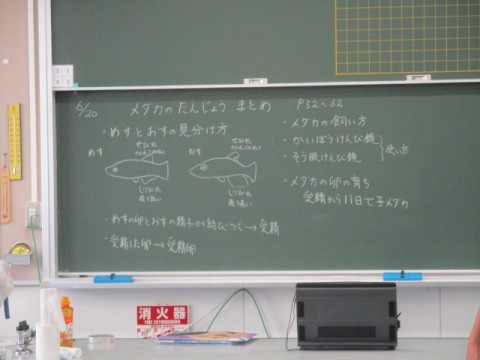 6/20 メダカのたんじょう まとめ P52～62
・めすとおすの見分け方
めす せびれ
おす せびれ
しりびれ
しりびれ
・めすの卵とおすの精子が結びつく→受精
・受精した卵→受精卵
・メダカの飼い方
・かいぼうけんび鏡
・そう眼けんび鏡
使い方
・メダカの卵の育ち
受精から11日で子メダカ
消火器
FIRE EXTINGUISHER